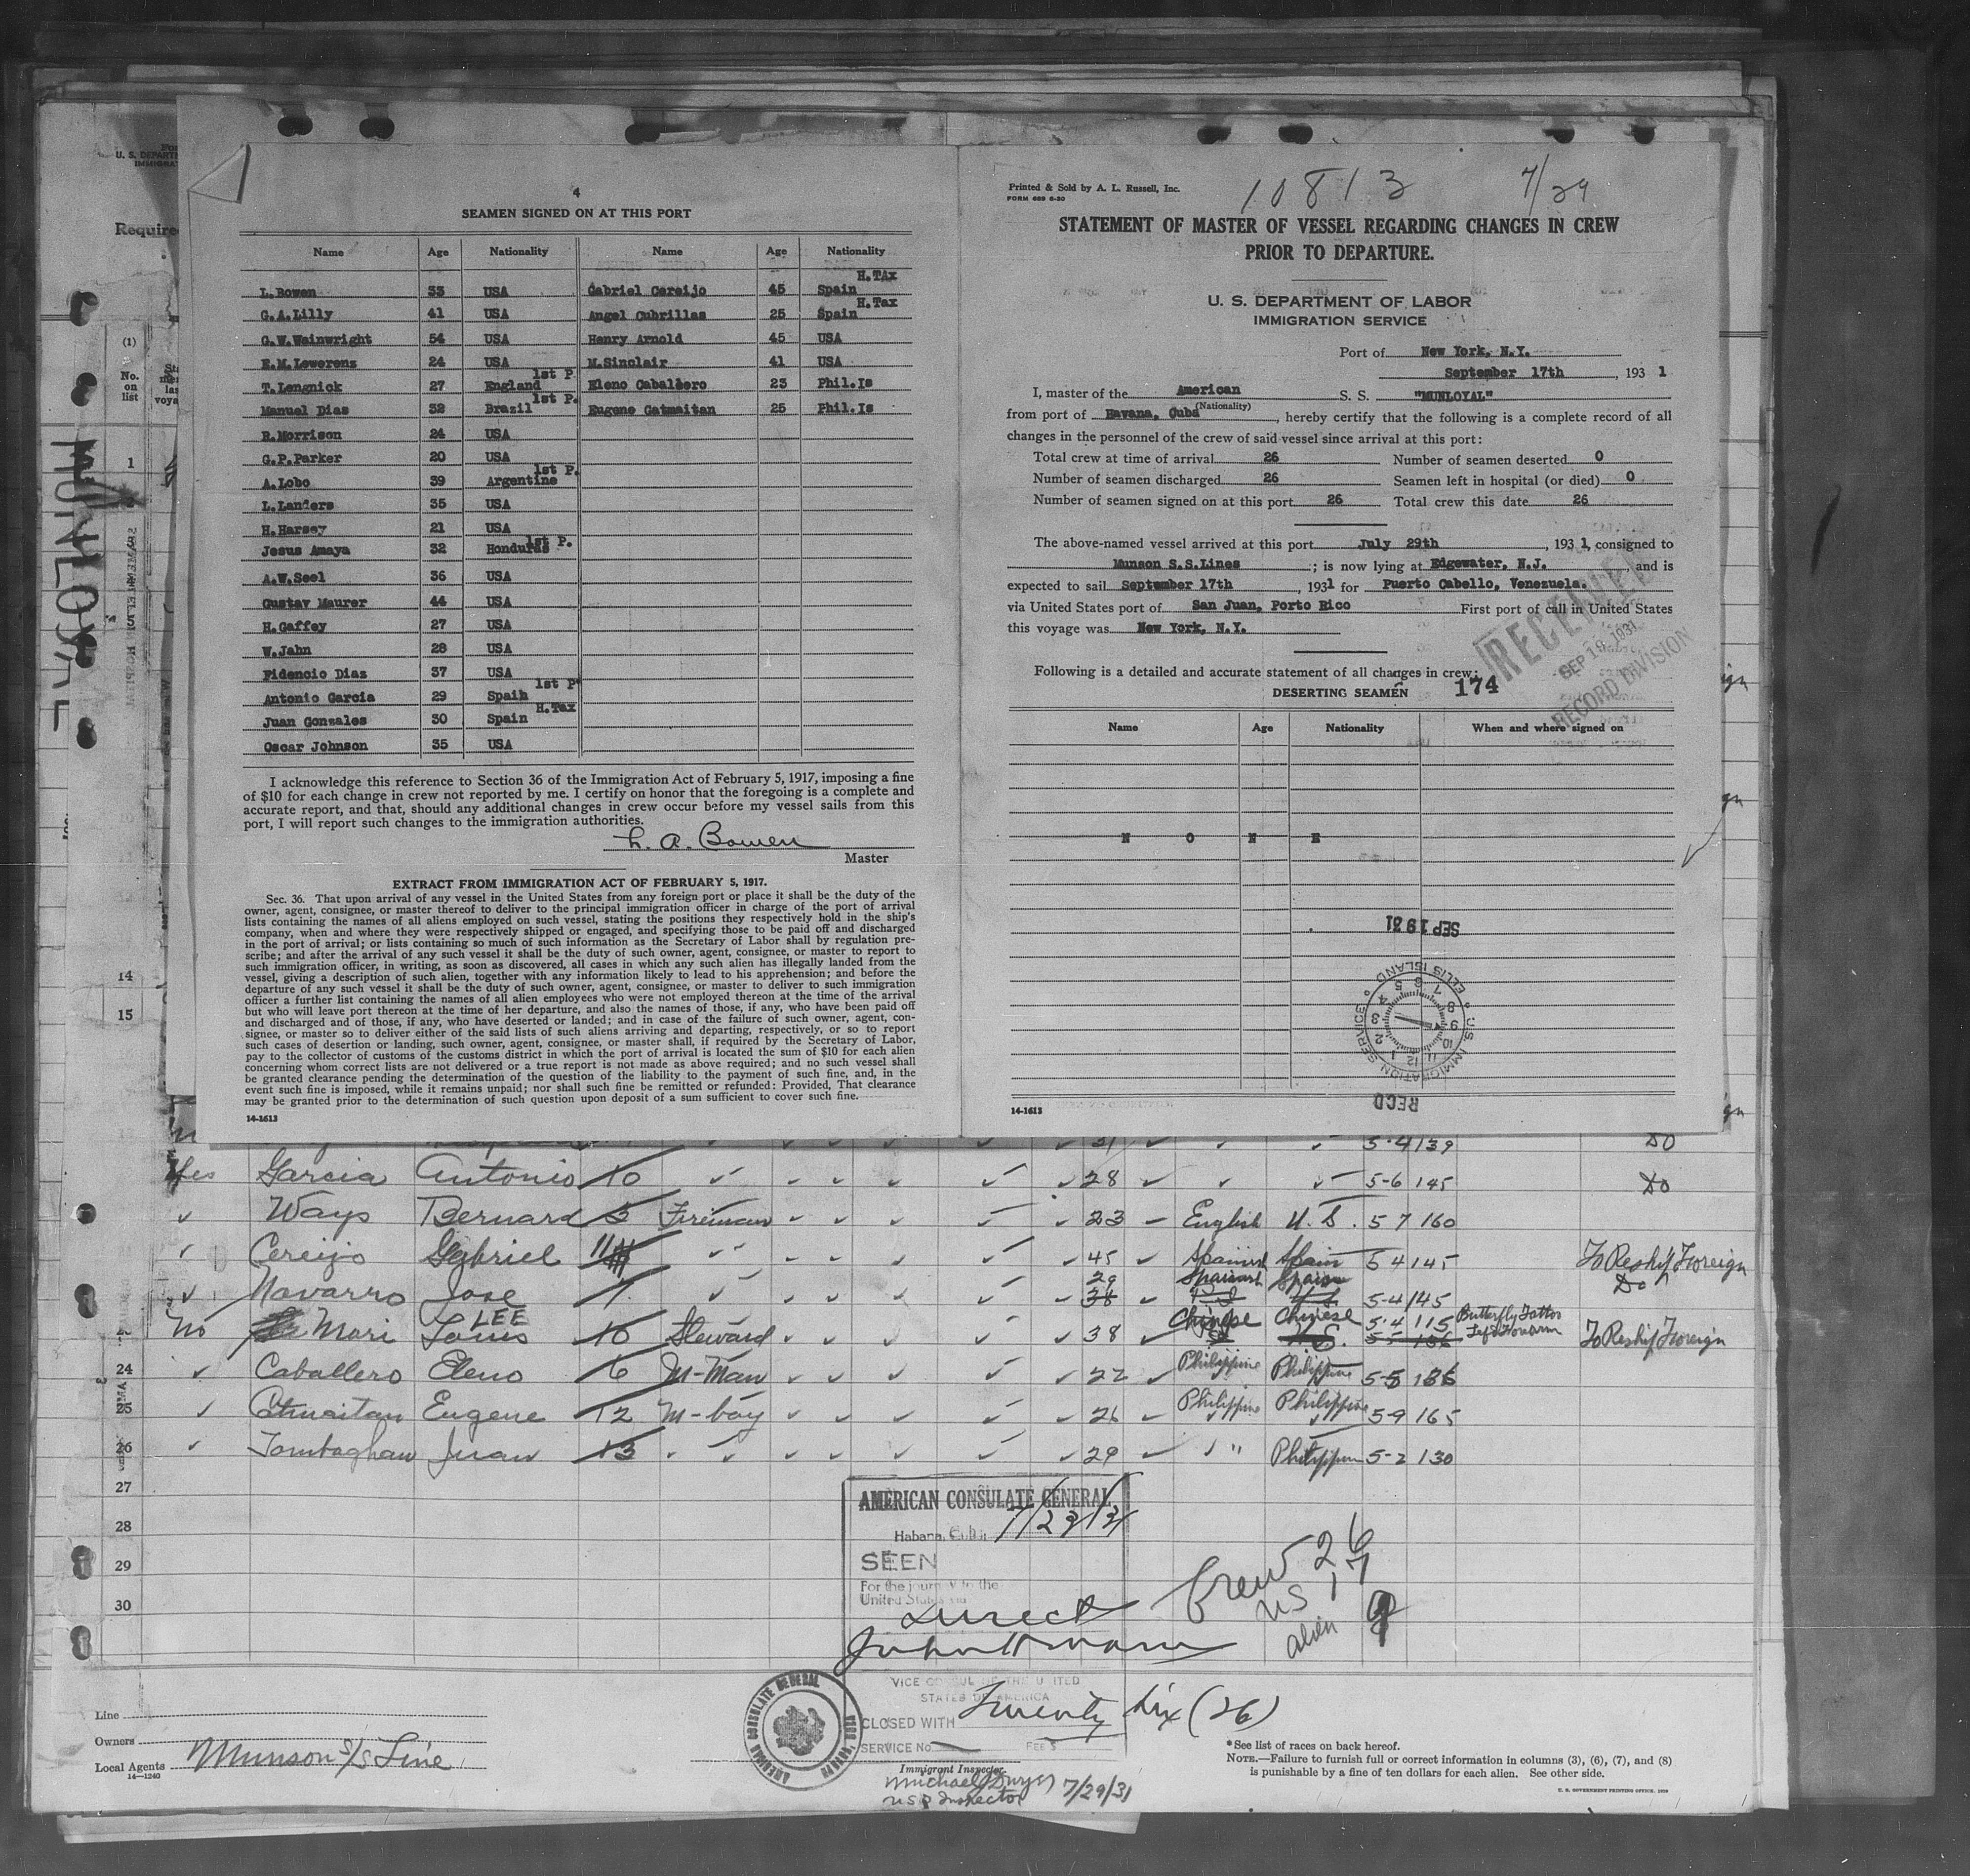 4
SEAMEN SIGNED ON AT THIS PORT
Name Age Nationality Name Age Nationality
L.Bowen 33 USA Gabriel Cereijo 45 Spain H.TAx
G.A.Lilly 41 USA Angel Cubrillas 25 Spain H.Tax
G.W.Wainwright 54 USA Henry Arnold 45 USA
E.M.Lewerenz 24 USA M.Sinclair 41 USA
T.Lengnick 27 England 1st P. Eleno Caballero 23 Phil.Is
Manuel Dias 32 Brazil 1st P. Eugene Catmaitan 25 Phil.Is
R.Morrison 24 USA
G.P.Parker 20 USA
A.Lobo 39 Argentine 1st P.
L.Landers 35 USA
H.Harsey 21 USA
Jesus Amaya 32 Honduras 1st P.
A.W.Seel 36 USA
Gustav Maurer 44 USA
H.Gaffey 27 USA
W.Jahn 28 USA
Fidencio Diaz 37 USA
Antonio Garcia 29 Spain 1st P
Juan Gonzales 30 Spain H.Tax
Oscar Johnson 35 USA
I acknowledge this reference to Section 36 of the Immigration Act of February 5, 1917, imposing a fine
of $10 for each change in crew not reported by me. I certify on honor that the foregoing is a complete and
accurate report, and that, should any additional changes in crew occur before my vessel sails from this
port, I will report such changes to the immigration authorities.
L. A. Bowen
Master
EXTRACT FROM IMMIGRATION ACT OF FEBRUARY 5, 1917.
Sec. 36. That upon arrival of any vessel in the United States from any foreign port or place it shall be the duty of the
owner, agent, consignee, or master thereof to deliver to the principal immigration officer in charge of the port of arrival
lists containing the names of all aliens employed on such vessel, stating the positions they respectively hold in the ship's
company, when and where they were respectively shipped or engaged, and specifying those to be paid off and discharged
in the port of arrival; or lists containing so much of such information as the Secretary of Labor shall by regulation pre-
scribe; and after the arrival of any such vessel it shall be the duty of such owner, agent, consignee, or master to report to
such immigration officer, in writing, as soon as discovered, all cases in which any such alien has illegally landed from the
vessel, giving a description of such alien, together with any information likely to lead to his apprehension; and before the
departure of any such vessel it shall be the duty of such owner, agent, consignee, or master to deliver to such immigration
officer a further list containing the names of all alien employees who were not employed thereon at the time of the arrival
but who will leave port thereon at the time of her departure, and also the names of those, if any, who have been paid off
and discharged and of those, if any, who have deserted or landed; and in case of the failure of such owner, agent, con-
signee, or master so to deliver either of the said lists of such aliens arriving and departing, respectively, or so to report
such cases of desertion or landing, such owner, agent, consignee, or master shall, if required by the Secretary of Labor,
pay to the collector of customs of the customs district in which the port of arrival is located the sum of $10 for each alien
concerning whom correct lists are not delivered or a true report is not made as above required; and no such vessel shall
be granted clearance pending the determination of the question of the liability to the payment of such fine, and, in the
event such fine is imposed, while it remains unpaid; nor shall such fine be remitted or refunded: Provided, That clearance
may be granted prior to the determination of such question upon deposit of a sum sufficient to cover such fine.
14-1613
Printed & Sold by A. L. Russell, Inc.
FORM 689 6-30
10813 7/29
STATEMENT OF MASTER OF VESSEL REGARDING CHANGES IN CREW
PRIOR TO DEPARTURE.
U. S. DEPARTMENT OF LABOR
IMMIGRATION SERVICE
Port of New York, N.Y.
September 17th, 1931
I, master of the American S. S. "MUNLOYAL"
(Nationality)
from port of Havana, Cuba, hereby certify that the following is a complete record of all
changes in the personnel of the crew of said vessel since arrival at this port:
Total crew at time of arrival 26 Number of seamen deserted 0
Number of seamen discharged 26 Seamen left in hospital (or died) 0
Number of seamen signed on at this port 26 Total crew this date 26
The above-named vessel arrived at this port July 29th, 1931, consigned to
Munson S.S.Lines; is now lying at Edgewater, N.J. and is
expected to sail September 17th, 1931 for Puerto Cabello, Venezuela.
via United States port of San Juan, Porto Rico First port of call in United States
this voyage was New York, N.Y.
RECEIVED
SEP 19 1931
RECORD DIVISION
Following is a detailed and accurate statement of all changes in crew:
DESERTING SEAMEN 174
Name Age Nationality When and where signed on
N O N E
SEP 19 31
U.S. IMMIGRATION SERVICE ELLIS ISLAND
RECD
14-1613
MUNLOYAL
Require
(1)
No.
on
list
1
14
15
5-4 139 Do
Yes Garcia Antonio 10 28 5-6 145 Do
Ways Bernard 3 Fireman 23 English U.S. 5 7 160
Cereijo Gabriel 11 45 Spanish Spain 5 4 145 To Reship Foreign
Navarro Jose 1 29 38 Spanish Spain 5-4 145 Do
No Mari Louis LEE 10 Steward 38 Chinese Chinese 5-4 115 Butterfly Tattoo Left Forearm To Reship Foreign
24 Caballero Eleno 6 M-Man 22 Philippine Philippine 5-5 136
25 Catmaitan Eugene 12 M-boy 26 Philippine Philippine 5-9 165
26 Tombaghan Juan 13 29 " Philippine 5-2 130
27
28
29
30
AMERICAN CONSULATE GENERAL
Habana, Cuba 7/23/31
SEEN
For the journey to the
United States via
direct
VICE CONSUL OF THE UNITED
STATES OF AMERICA
CLOSED WITH Twenty six (26)
SERVICE No. FEE $
Crew 26
US 17
alien 9
AMERICAN CONSULATE GENERAL HABANA, CUBA
Line
Owners
Local Agents Munson S/S Line
14-1240
Immigrant Inspector.
Michael Dwyer 7/29/31
US Inspector
*See list of races on back hereof.
NOTE.—Failure to furnish full or correct information in columns (3), (6), (7), and (8)
is punishable by a fine of ten dollars for each alien. See other side.
U. S. GOVERNMENT PRINTING OFFICE